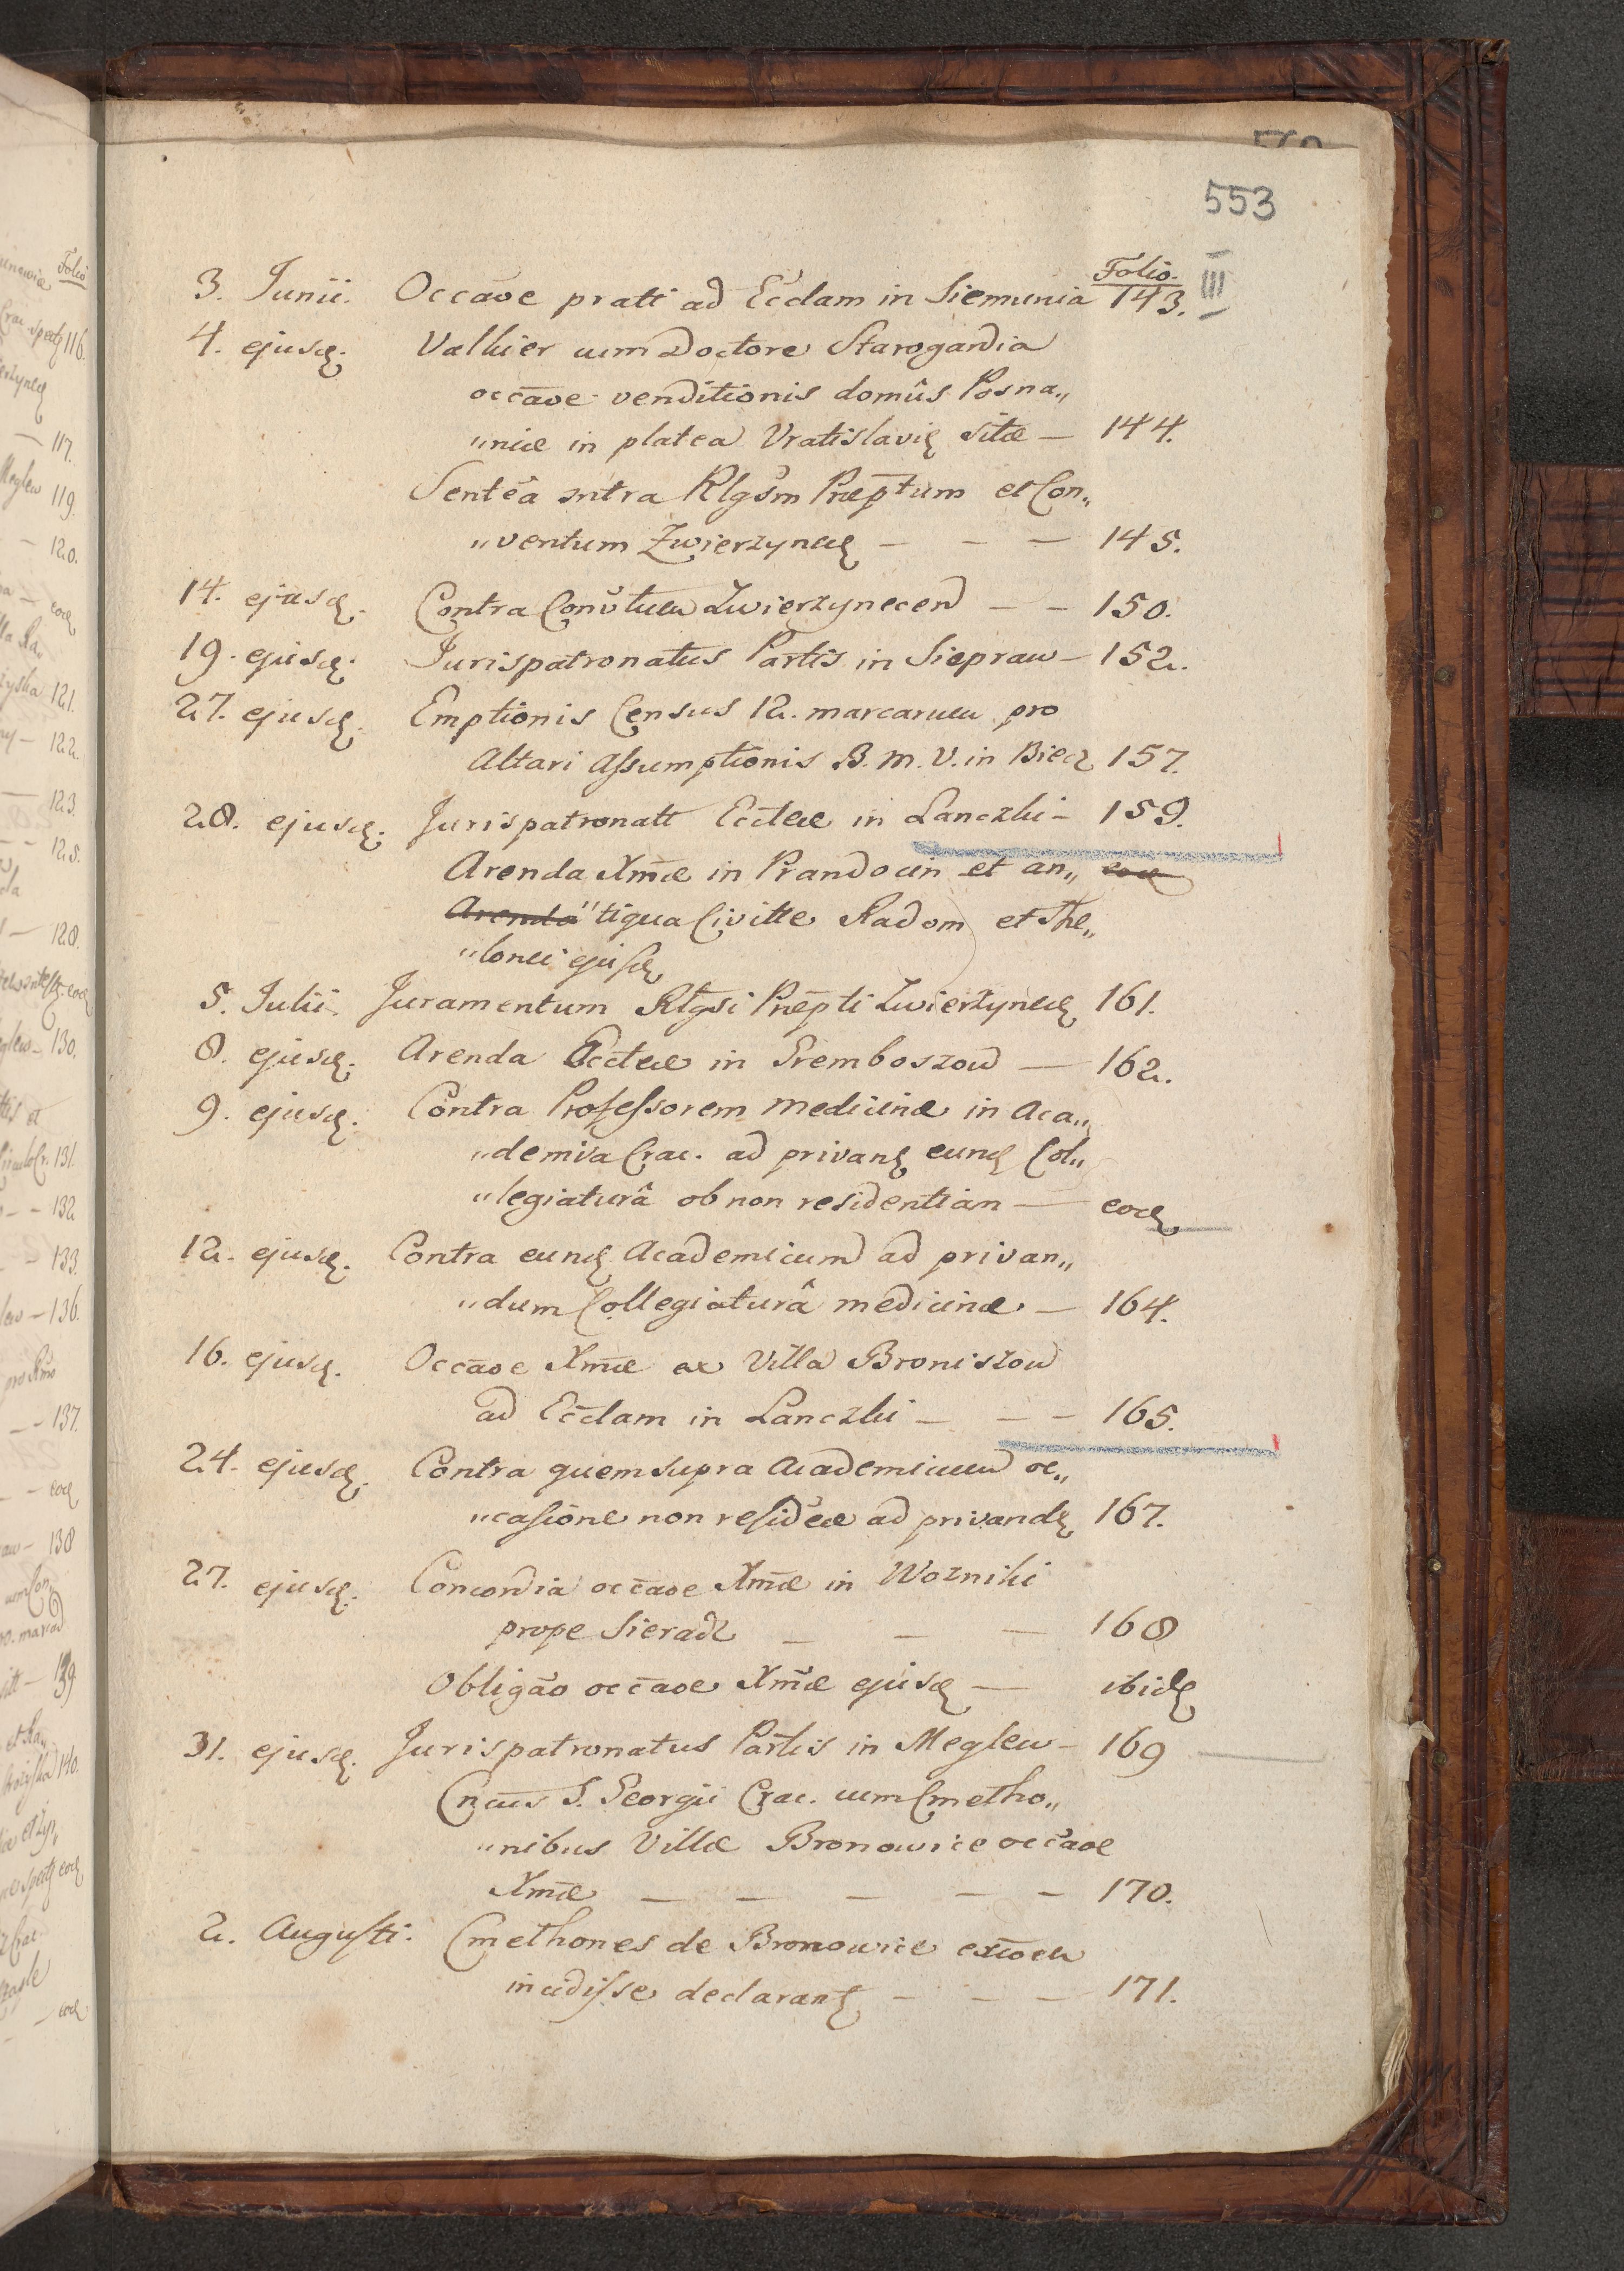 553
Folio. III
3. Junii. Occãoe prati ad Eccl̃am in Siemunia 143.
4. ejusd. Valhier cum Doctore Starogardia
occãoe venditionis domûs Posna„
„niæ in platea Vratislavię sitæ — 144.
Sentẽa intra Rlgsm̃ Præp̃tum et Con„
„ventum Zwierzyneć — — — 145.
14. ejusd. Contra Conṽtum Zwierzynecen — — 150.
19. ejusd. Jurispatronatus Partis in Siepraw — 152.
27. ejusd. Emptionis Census 12. marcarum pro
Altari Assumptionis B. M. V. in Biecz 157.
28. ejusd. Jurispatronatt Eccl̃æ in Lanczki — 159.
Arenda Xm̃æ in Prandocin et an„ eod
Arenda „tiqua Civitte Radom et The„
„lonei ejusd
5. Julii. Juramentum Rlgsi Præp̃ti Zwierzyneć 161.
8. ejusd. Arenda Eccl̃æ in Premboszow — 162.
9. ejusd. Contra Professorem medicinæ in Aca„
„demiva Crac. ad privand eund Col„
„legiaturâ ob non residentiam — eod
12. ejusd. Contra eund Academicum ad privan„
„dum Collegiaturâ medicinæ. — 164.
16. ejusd. Occãoe Xm̃æ ex Villa Broniszow
ad Eccl̃am in Lanczki — — — 165.
24. ejusd. Contra quem supra Academicum oc„
„casione non residẽæ ad privand 167.
27. ejusd. Concordia occãoe Xm̃æ in Wozniki
prope Sieradz — — — 168
Obligão occãoe Xm̃æ ejusd — ibid
31. ejusd. Jurispatronatus Partis in Meglew — 169
Cñcus S. Georgii Crac. cum Cmetho„
„nibus Villæ Bronowice occãoe
Xm̃æ — — — — — 170.
2. Augusti. Cmethones de Bronowice
incidisse declarant — — — 171.